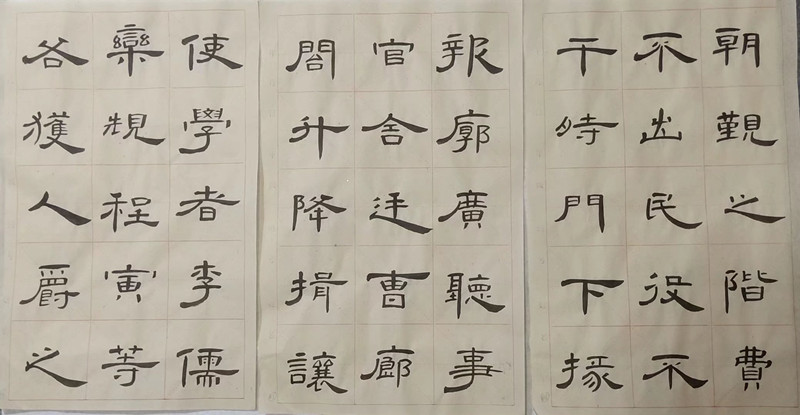 使學者李儒
欒規程寅等
各獲人爵之
報廓廣聽事
官舍廷曹廊
閤升降揖讓
朝覲之階費
不出民役不
干時門下掾